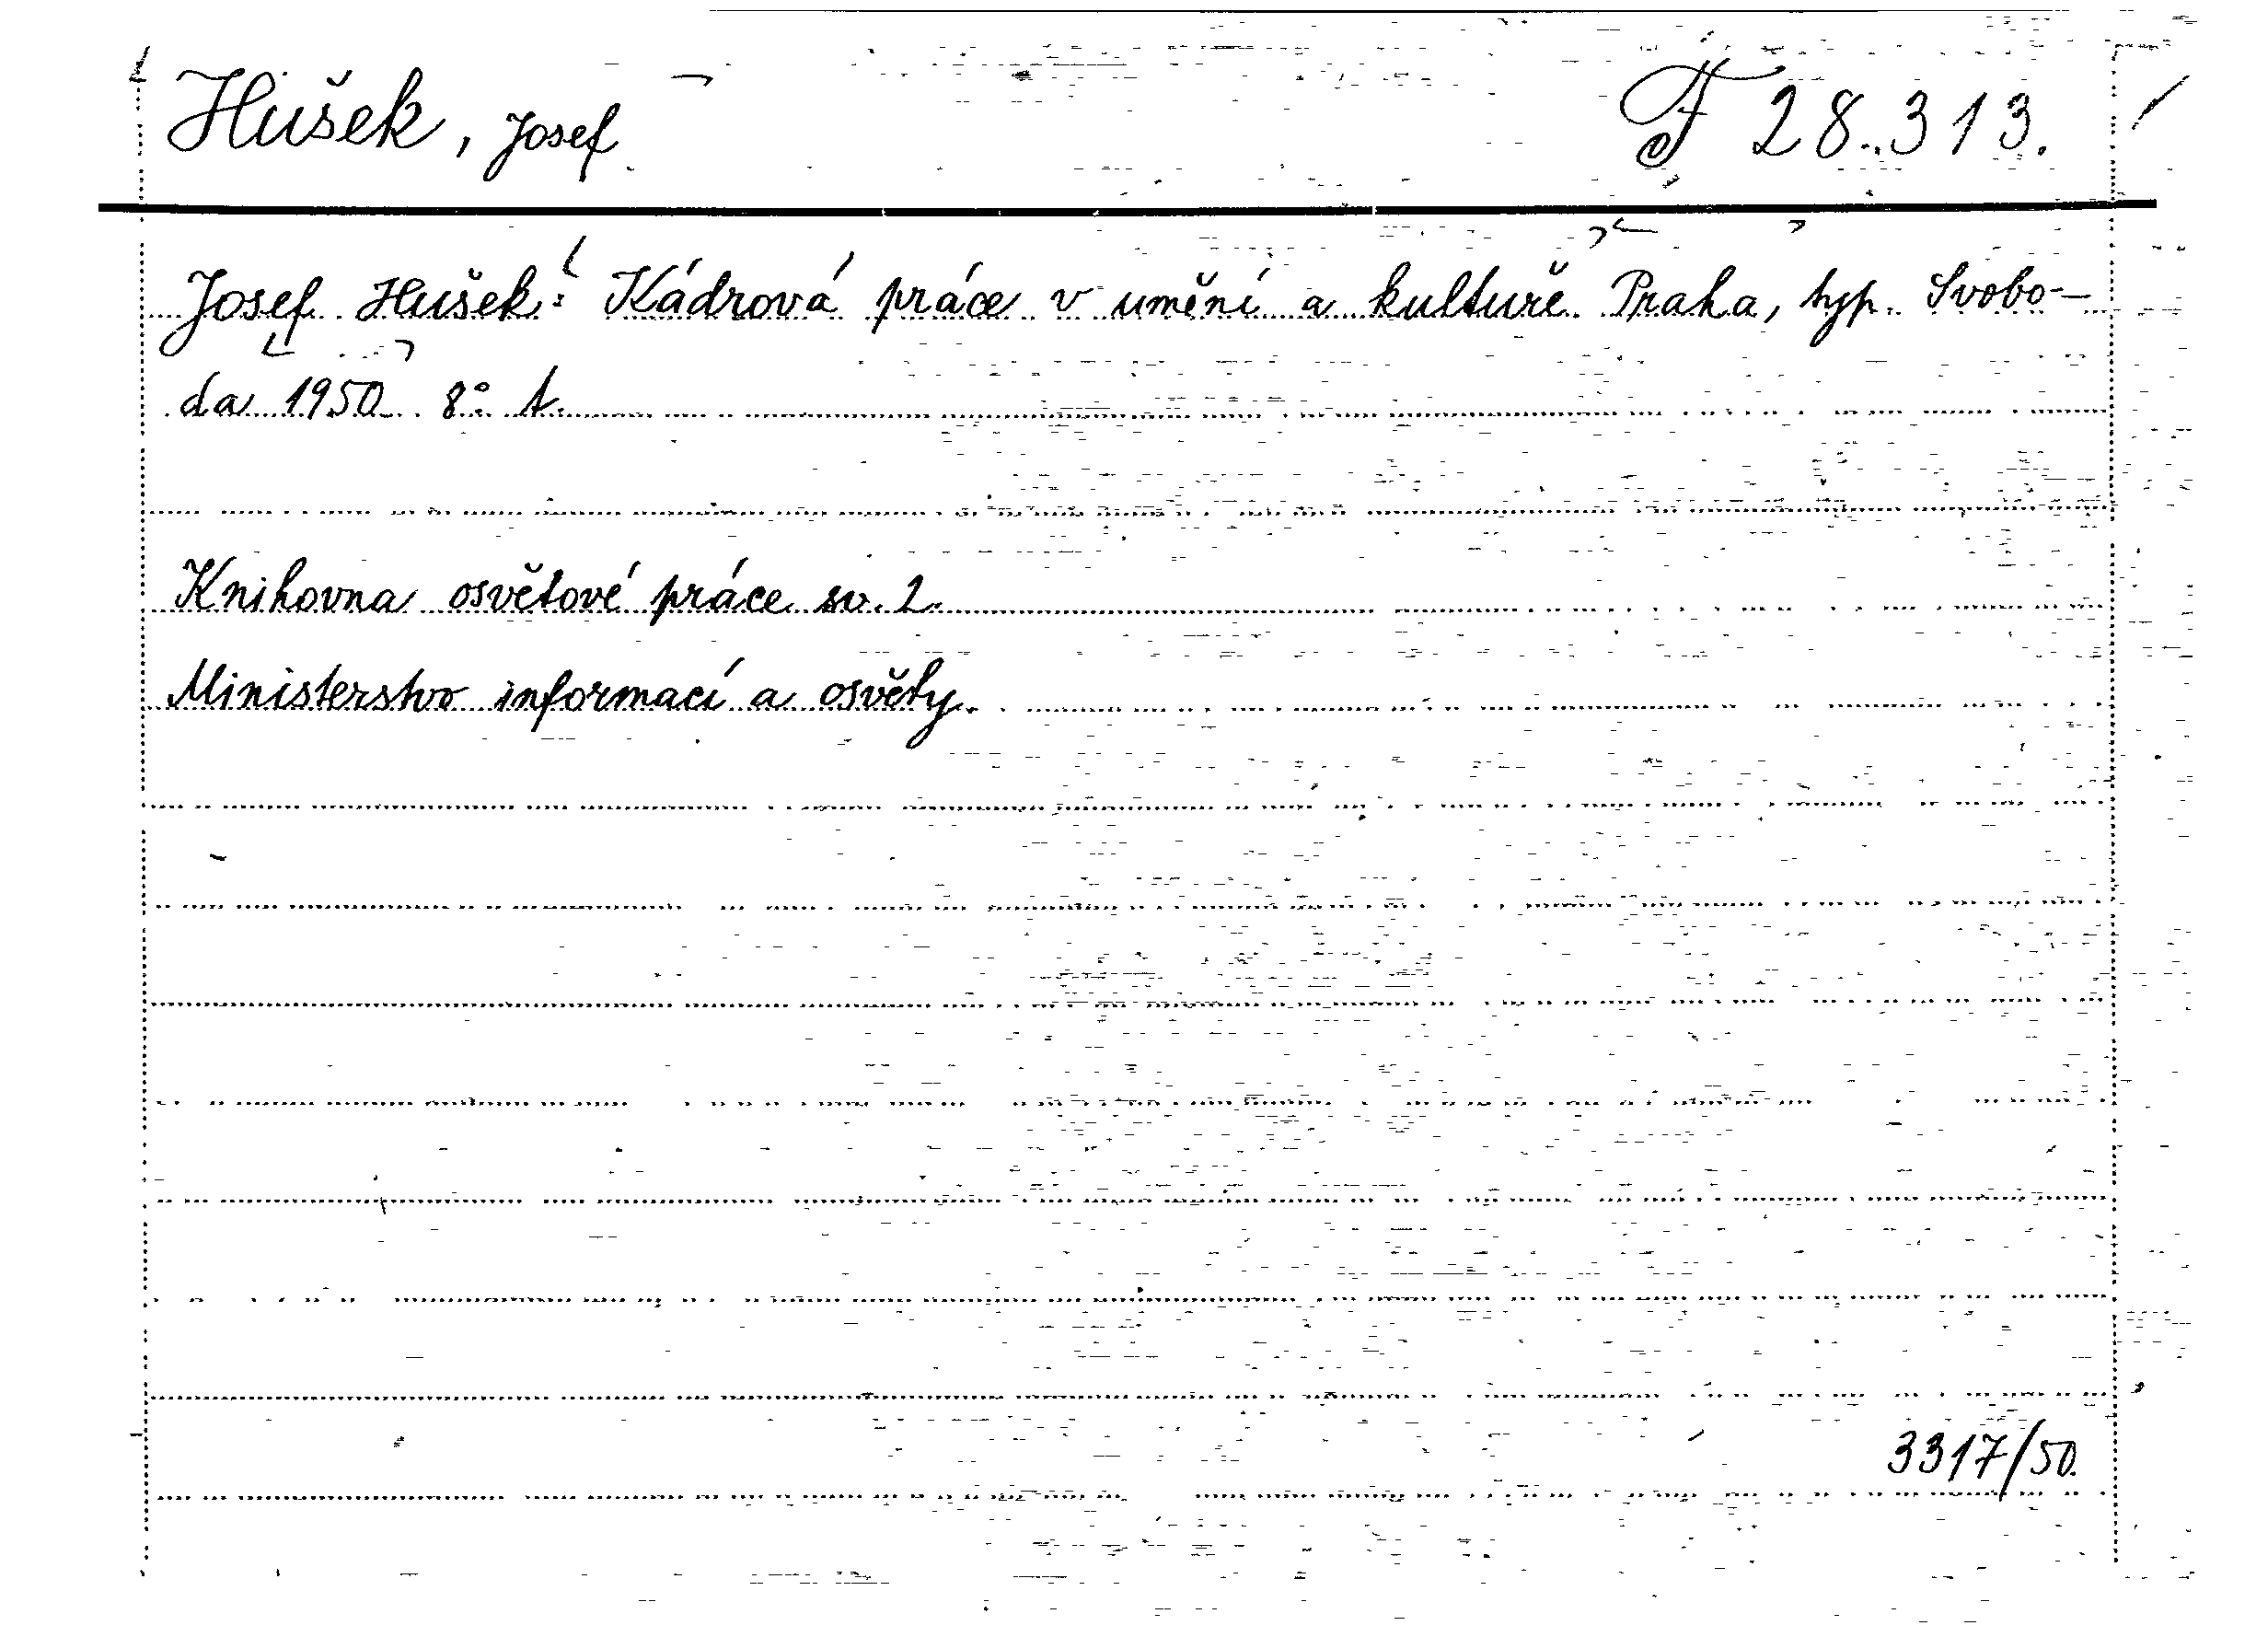 Hušek, Josef
F 28.313.
Josef Hušek: Kádrová práce v umění a kultuře. Praha, typ. Svobo-
da 1950 8° t.
Knihovna osvětové práce sv. 2.
Ministerstvo informací a osvěty.
3317/50.